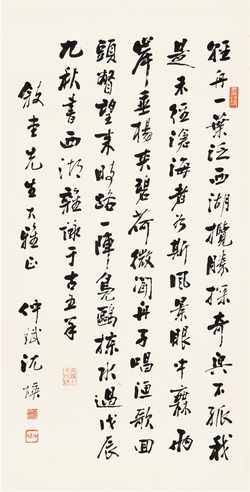 轻舟一叶泛西湖揽胜探奇兴不孤我
是未经沧海者如斯风景眼中无两
岸垂杨夹碧荷微闻舟子唱渔歌回
头瞥望来时路一阵凫鸥掠水过戊辰
九秋书西湖杂咏于古五羊
叙奎先生大雅正 仲